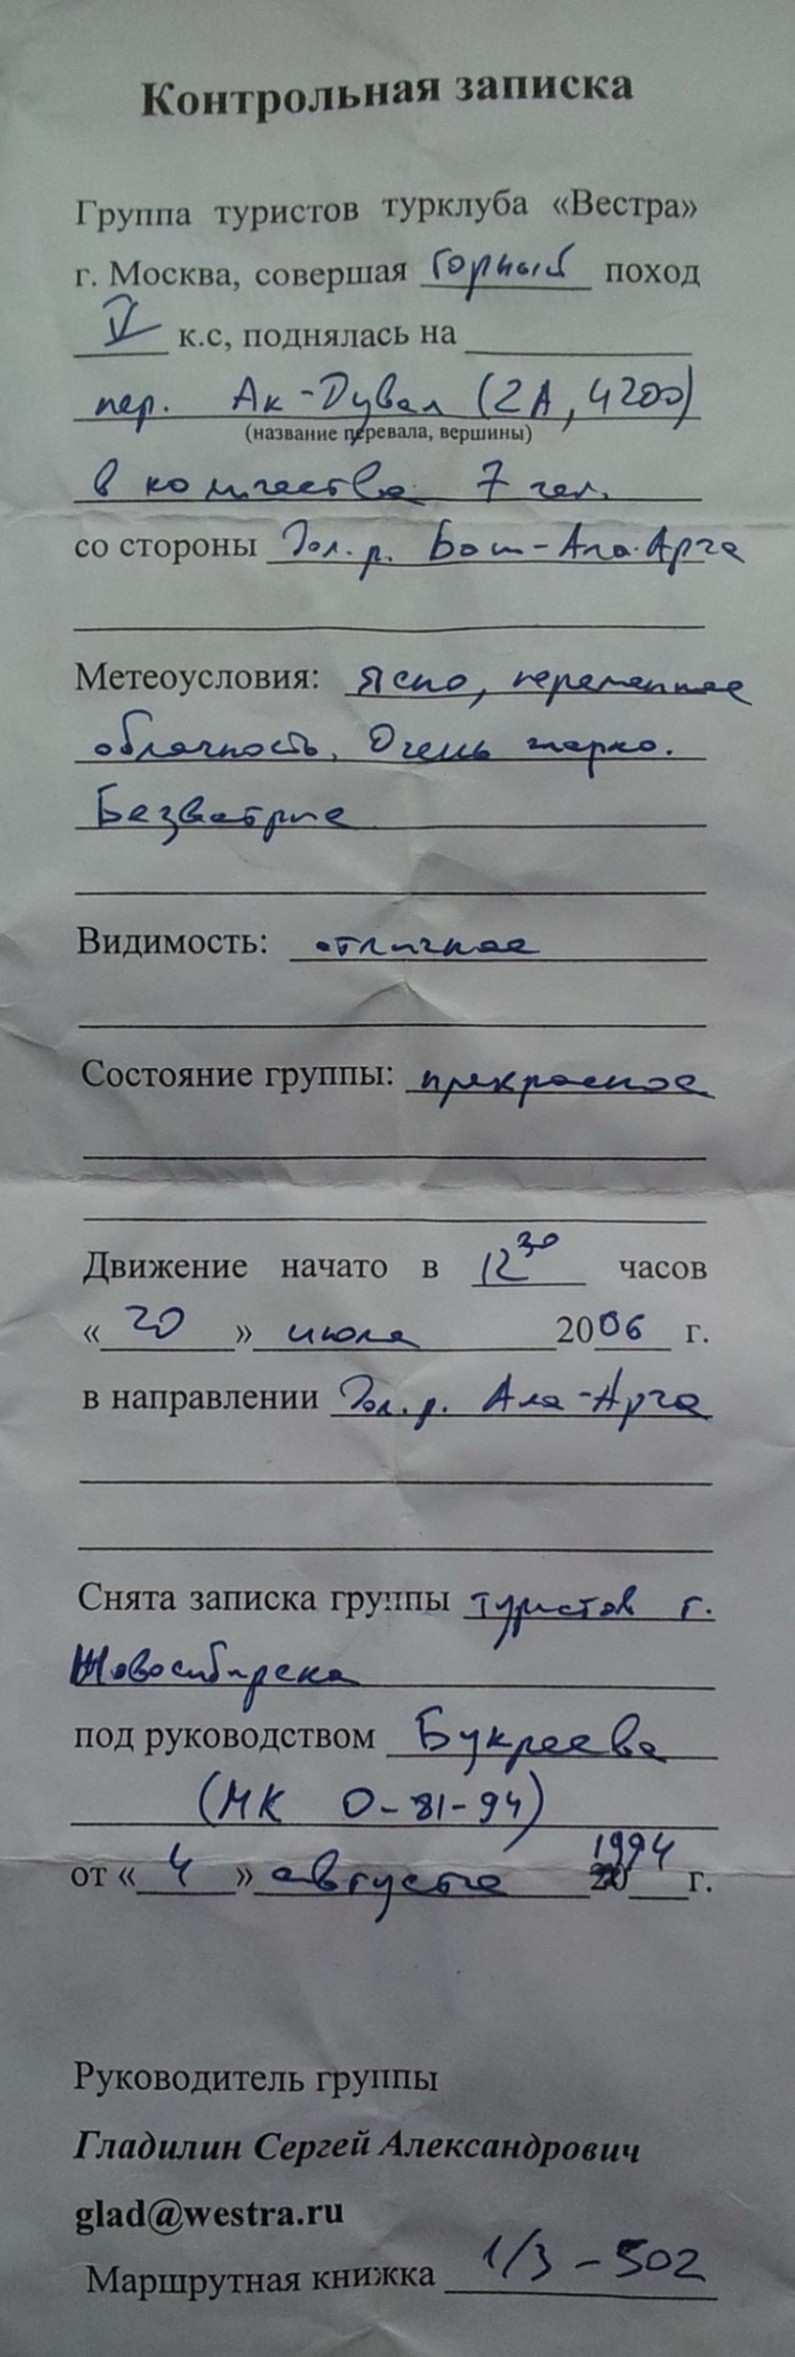 Контрольная записка
Группа туристов турклуба «Вестра»
г. Москва, совершая горный поход
V к.с, поднялась на
пер. Ак-Дувал (2А, 4200)
(название перевала, вершины)
в количестве 7 чел.
со стороны дол. р. Бош-Ала-Арча
Метеоусловия: Ясно, переменная
облачность. Очень жарко.
Безветрие
Видимость: отличная
Состояние группы: прекрасное
Движение начато в 12 30 часов
«20» июля 2006 г.
в направлении дол. р. Ала-Арча
Снята записка группы туристов г.
Новосибирска
под руководством Букреева
(МК 0-81-94)
от «4» августа 1994 г.
Руководитель группы
Гладилин Сергей Александрович
glad@westra.ru
Маршрутная книжка 1/3-502